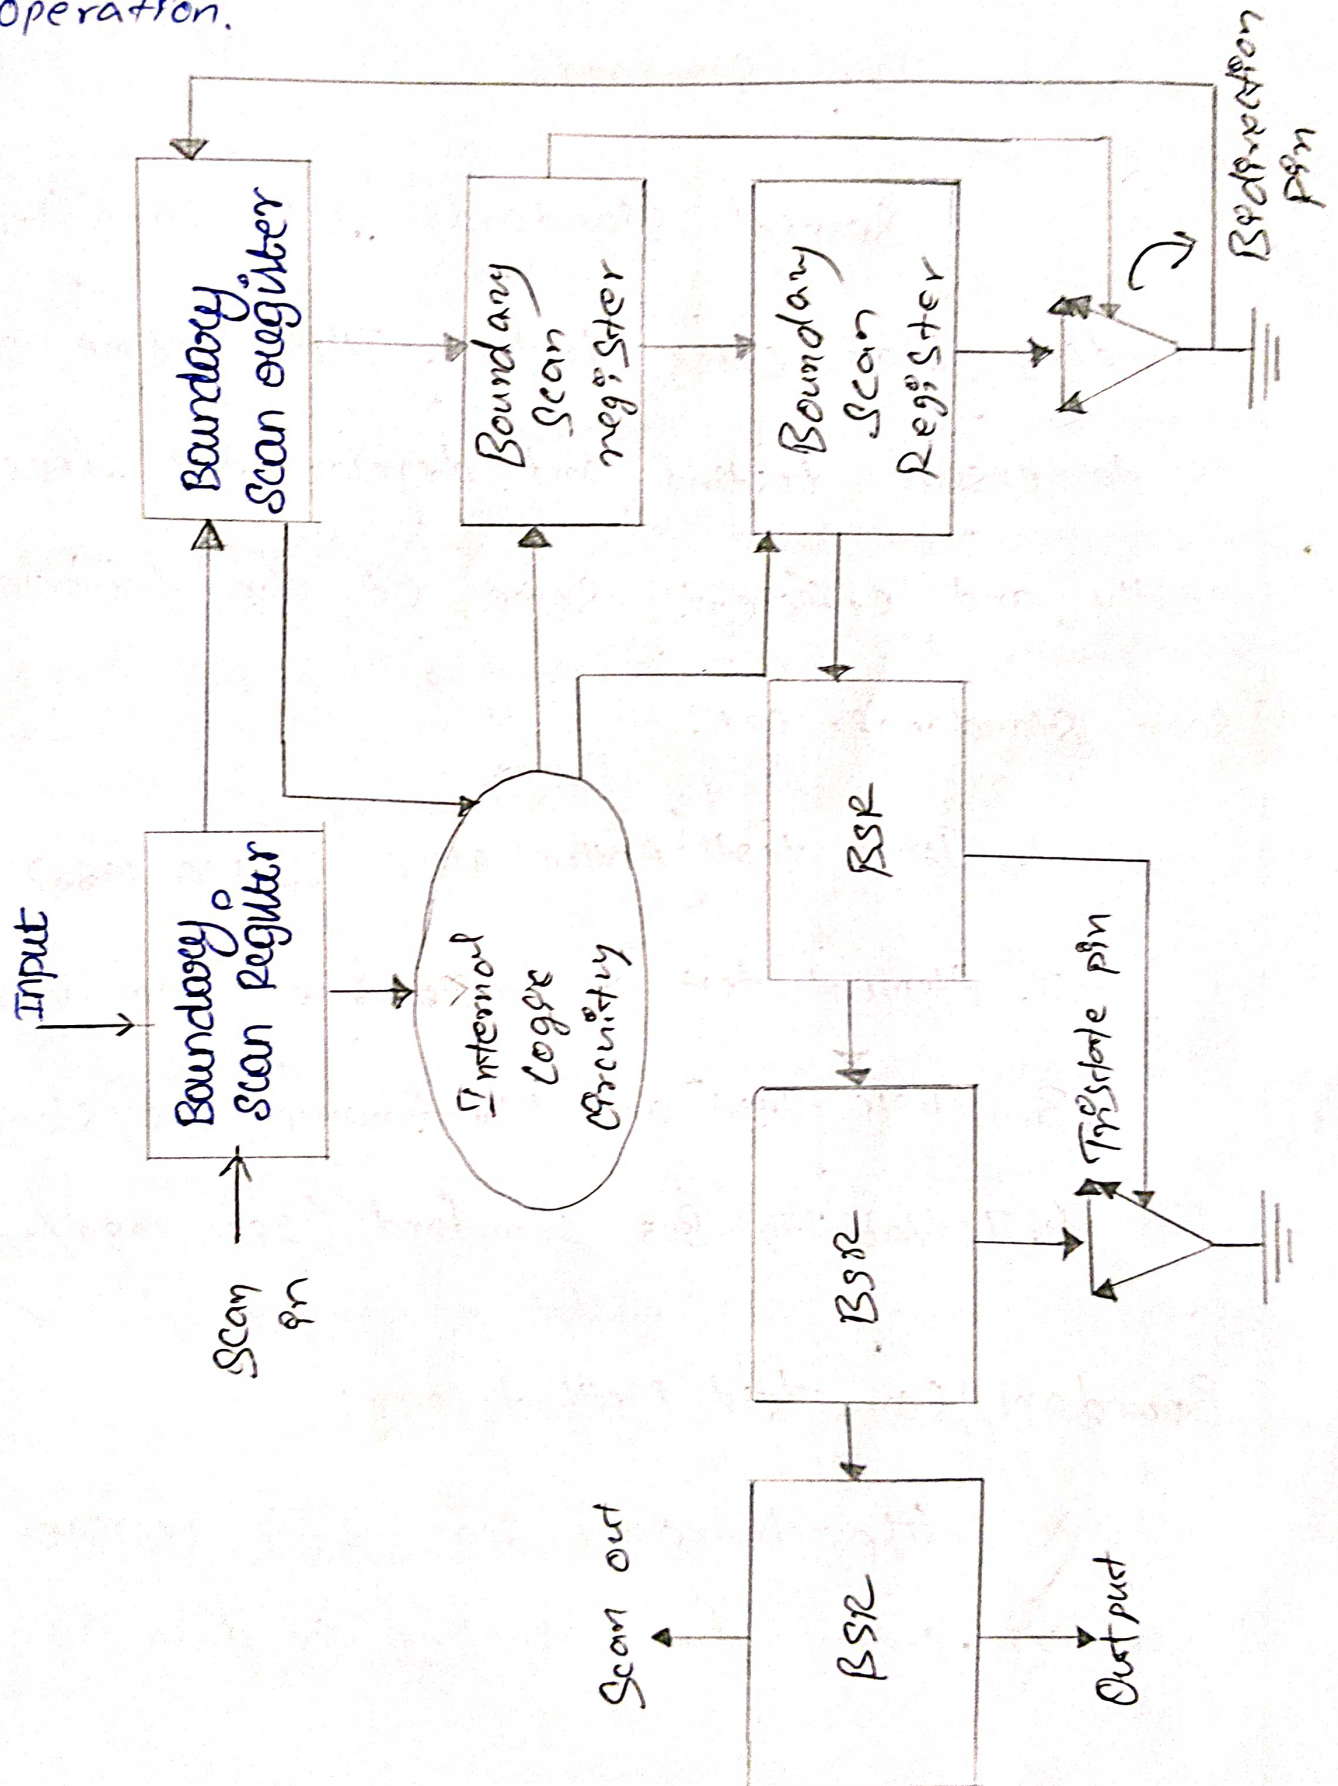 operation.
Input
Scan
in
Boundary
Scan Register
Boundary
Scan register
Internal
Logic
Circuitry
Boundary
Scan
register
Boundary
Scan
Register
Bidirection
Pin
BSR
Tristate pin
BSR
BSR
Scan out
Output